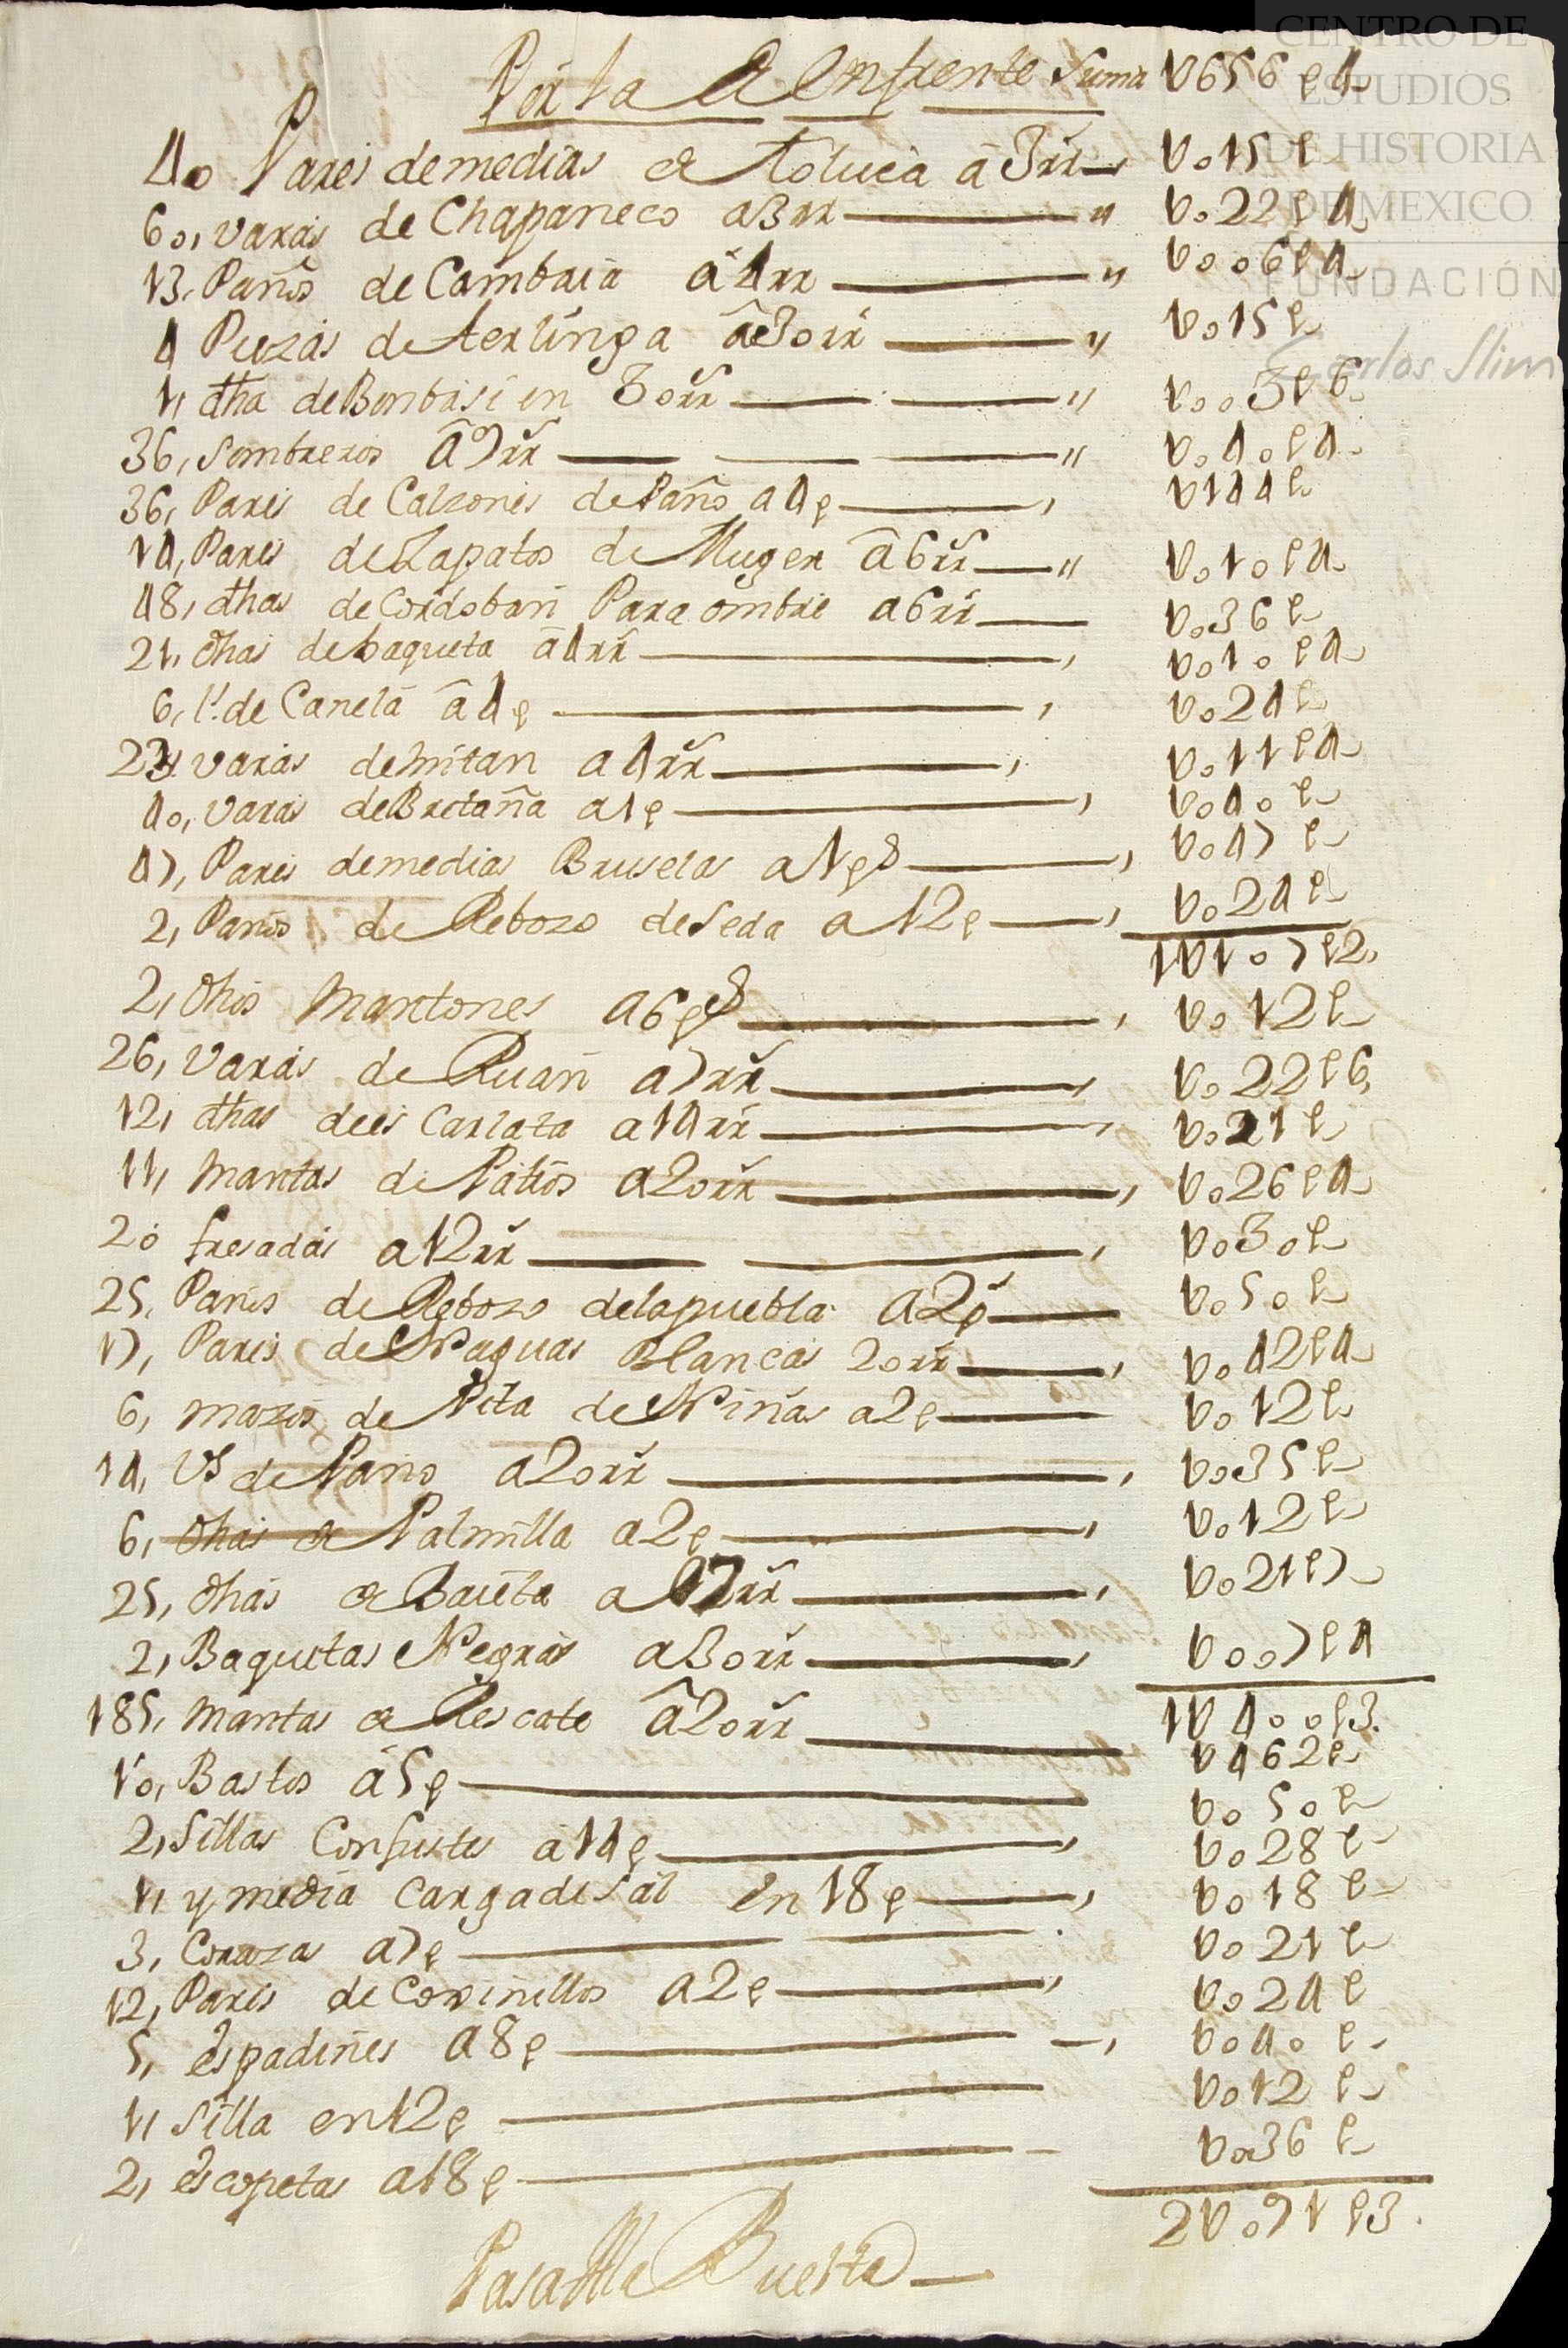 Por la de Enfrente Suma V656 p 4
40 Pares de medias de Toluca a 3 rr V015 p
60, varas de Chapaneco a 3 rr V022 p 4
13, Paños de Cambaia a 4 rr V006 p 4
4 Piezas de terlinga a 30 rr V015 p
1, dha de Bonbasi en 30 rr V003 p 6
36, Sombreros a 9 rr V040 p 4
36, Pares de Calzones de Paño a 4 p V144 p
14, Pares de Zapatos de Muger a 6 rr V010 p 4
48, dhas de Cordoban Para ombre a 6 rr V036 p
21, dhas de baqueta a 4 rr V010 p 4
6, l. de Canela a 4 p V024 p
23, varas de mitan a 4 rr V011 p 4
40, varas de Bretaña a 1 p V040 p
47, Pares de medias Bruselas a 1 ps V047 p
2, Paños de Rebozo de Seda a 12 p V024 p
1V107 p 2
2, dhos Mantones a 6 ps V012 p
26, Varas de Ruan a 7 rr V022 p 6
12, dhas de es Carlata a 14 rr V021 p
11, Mantas de Patios a 20 rr V026 p 4
20 fresadas a 12 rr V030 p
25, Paños de Rebozo de la puebla a 2 p V050 p
17, Pares de Naguas Blancas 20 rr V042 p 4
6, mazos de Pita de Niñas a 2 p V012 p
14, Vs de Paño a 20 rr V035 p
6, dhas de Palmilla a 2 p V012 p
25, dhas de Baieta a 7 rr V021 p 7
2, Baquetas Negras a 30 rr V007 p 4
1V400 p 3
185, Mantas de Rescate a 20 rr V462 p
10, Bastos a 5 p V050 p
2, Sillas Con fustes a 14 p V028 p
1, y media carga de Sal en 18 p V018 p
3, Corazas a 7 p V021 p
12, Pares de Coxinillos a 2 p V024 p
5, espadines a 8 p V040 p
1, Silla en 12 p V012 p
2, escopetas a 18 p V036 p
2V091 p 3
Pasa Ala Buelta
CENTRO DE
ESTUDIOS
DE HISTORIA
DE MEXICO
FUNDACIÓN
Carlos Slim